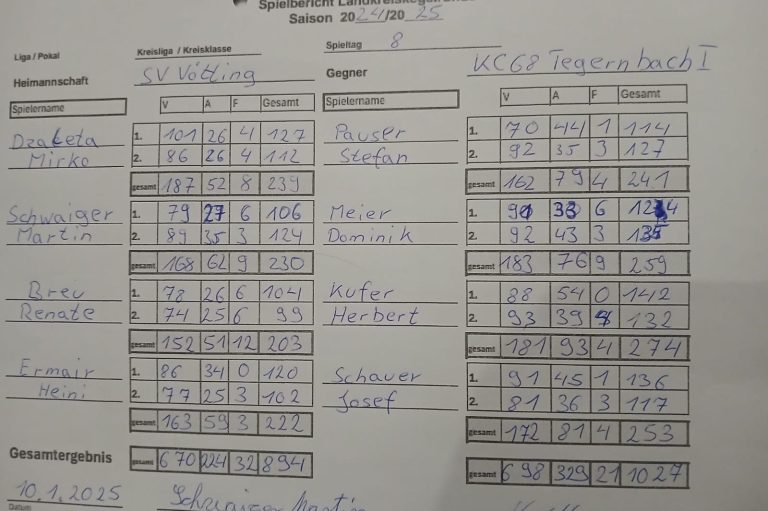 Spielbericht
Saison 2024/2025
Liga / Pokal
Kreisliga / Kreisklasse
Spieltag 8
Heimannschaft SV Vötting
Gegner KC68 Tegernbach I
Spielername V A F Gesamt
Dzaketa 1. 101 26 4 127
Mirko 2. 86 26 4 112
gesamt 187 52 8 239
Schwaiger 1. 79 27 6 106
Martin 2. 89 35 3 124
gesamt 168 62 9 230
Breu 1. 78 26 6 104
Renate 2. 74 25 6 99
gesamt 152 51 12 203
Ermair 1. 86 34 0 120
Heini 2. 77 25 3 102
gesamt 163 59 3 222
Gesamtergebnis gesamt 670 224 32 894
Spielername V A F Gesamt
Pauser 1. 70 44 1 114
Stefan 2. 92 35 3 127
gesamt 162 79 4 241
Meier 1. 91 33 6 124
Dominik 2. 92 43 3 135
gesamt 183 76 9 259
Kufer 1. 88 54 0 142
Herbert 2. 93 39 4 132
gesamt 181 93 4 274
Schauer 1. 91 45 1 136
Josef 2. 81 36 3 117
gesamt 172 81 4 253
gesamt 698 329 21 1027
10.1.2025 Schwaiger Martin
Datum